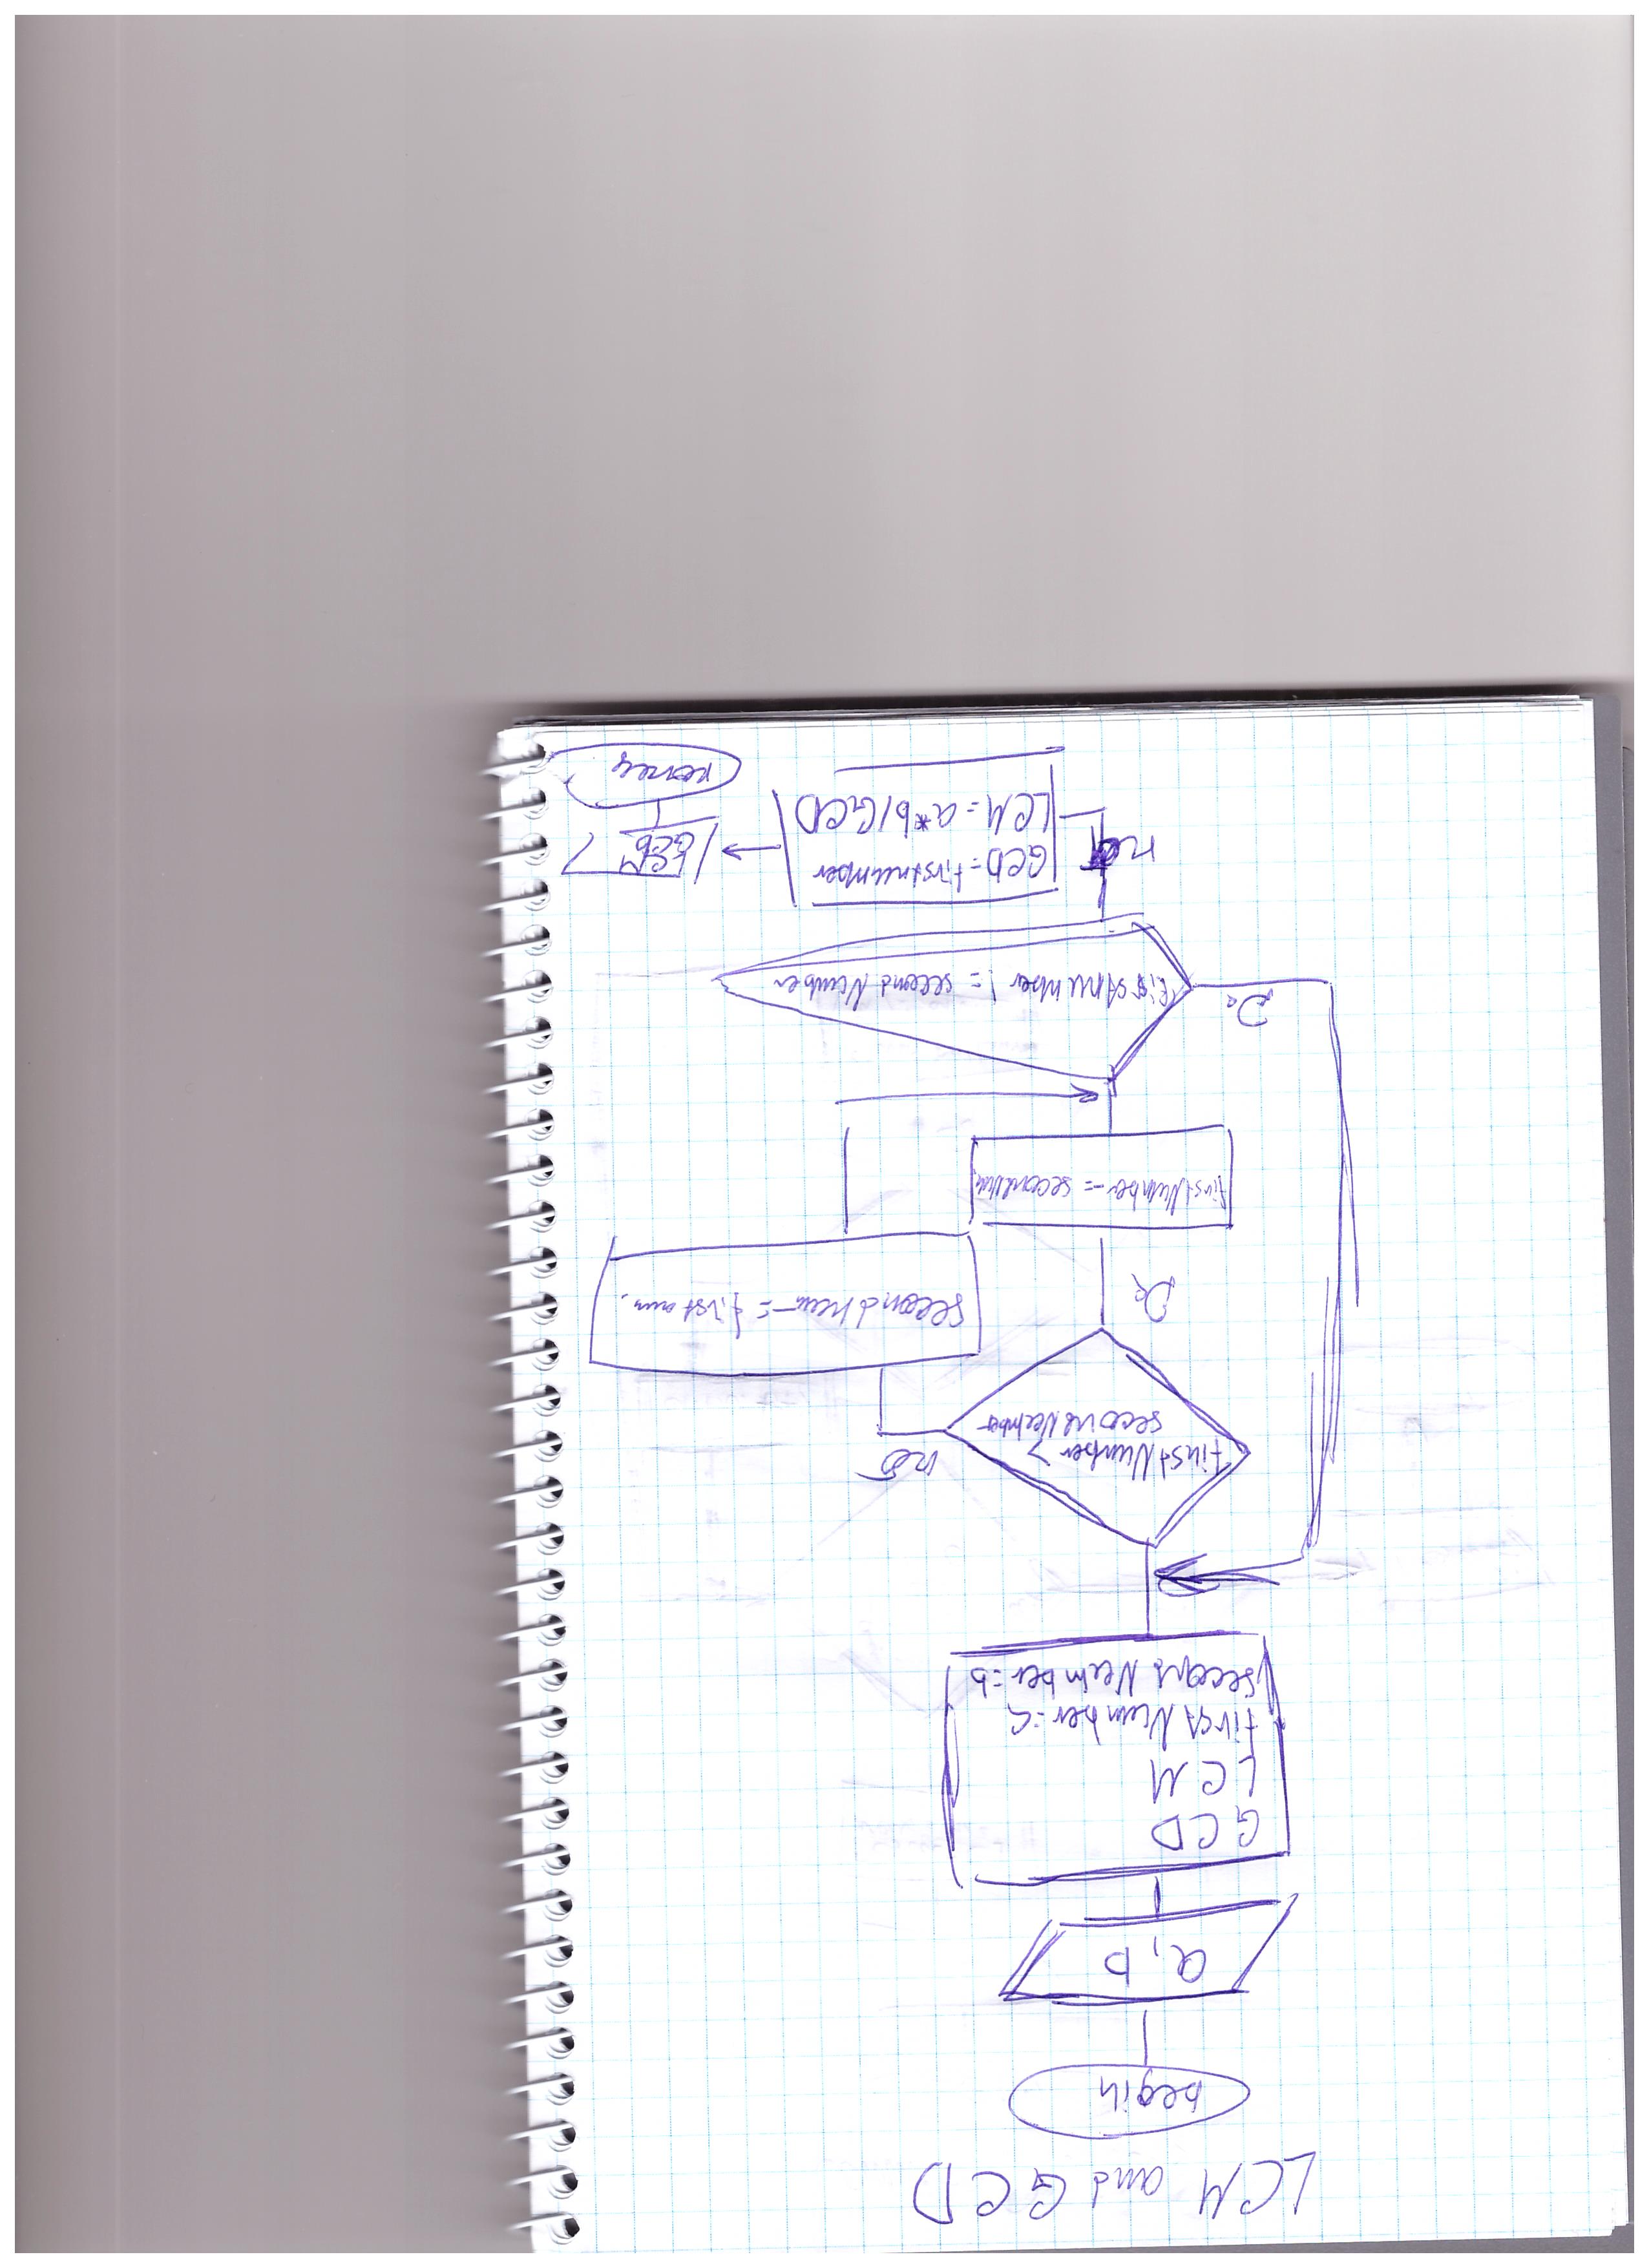 LCM and GCD
begin
a, b
GCD
LCM
first Number=a
second Number=b
first Number >
second Number
нет
Да
second num -= first num.
first Number -= second Num
first number != second Number
Да
нет
GCD = first number
LCM = a*b/GCD
LCM
GCD
конец